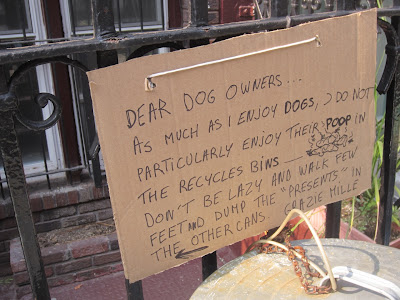 DEAR DOG OWNERS...
AS MUCH AS I ENJOY DOGS, I DO NOT
PARTICULARLY ENJOY THEIR POOP IN
THE RECYCLES BINS
DON'T BE LAZY AND WALK FEW
FEET AND DUMP THE "PRESENTS" IN
THE OTHER CANS. CRAZIE MILLE